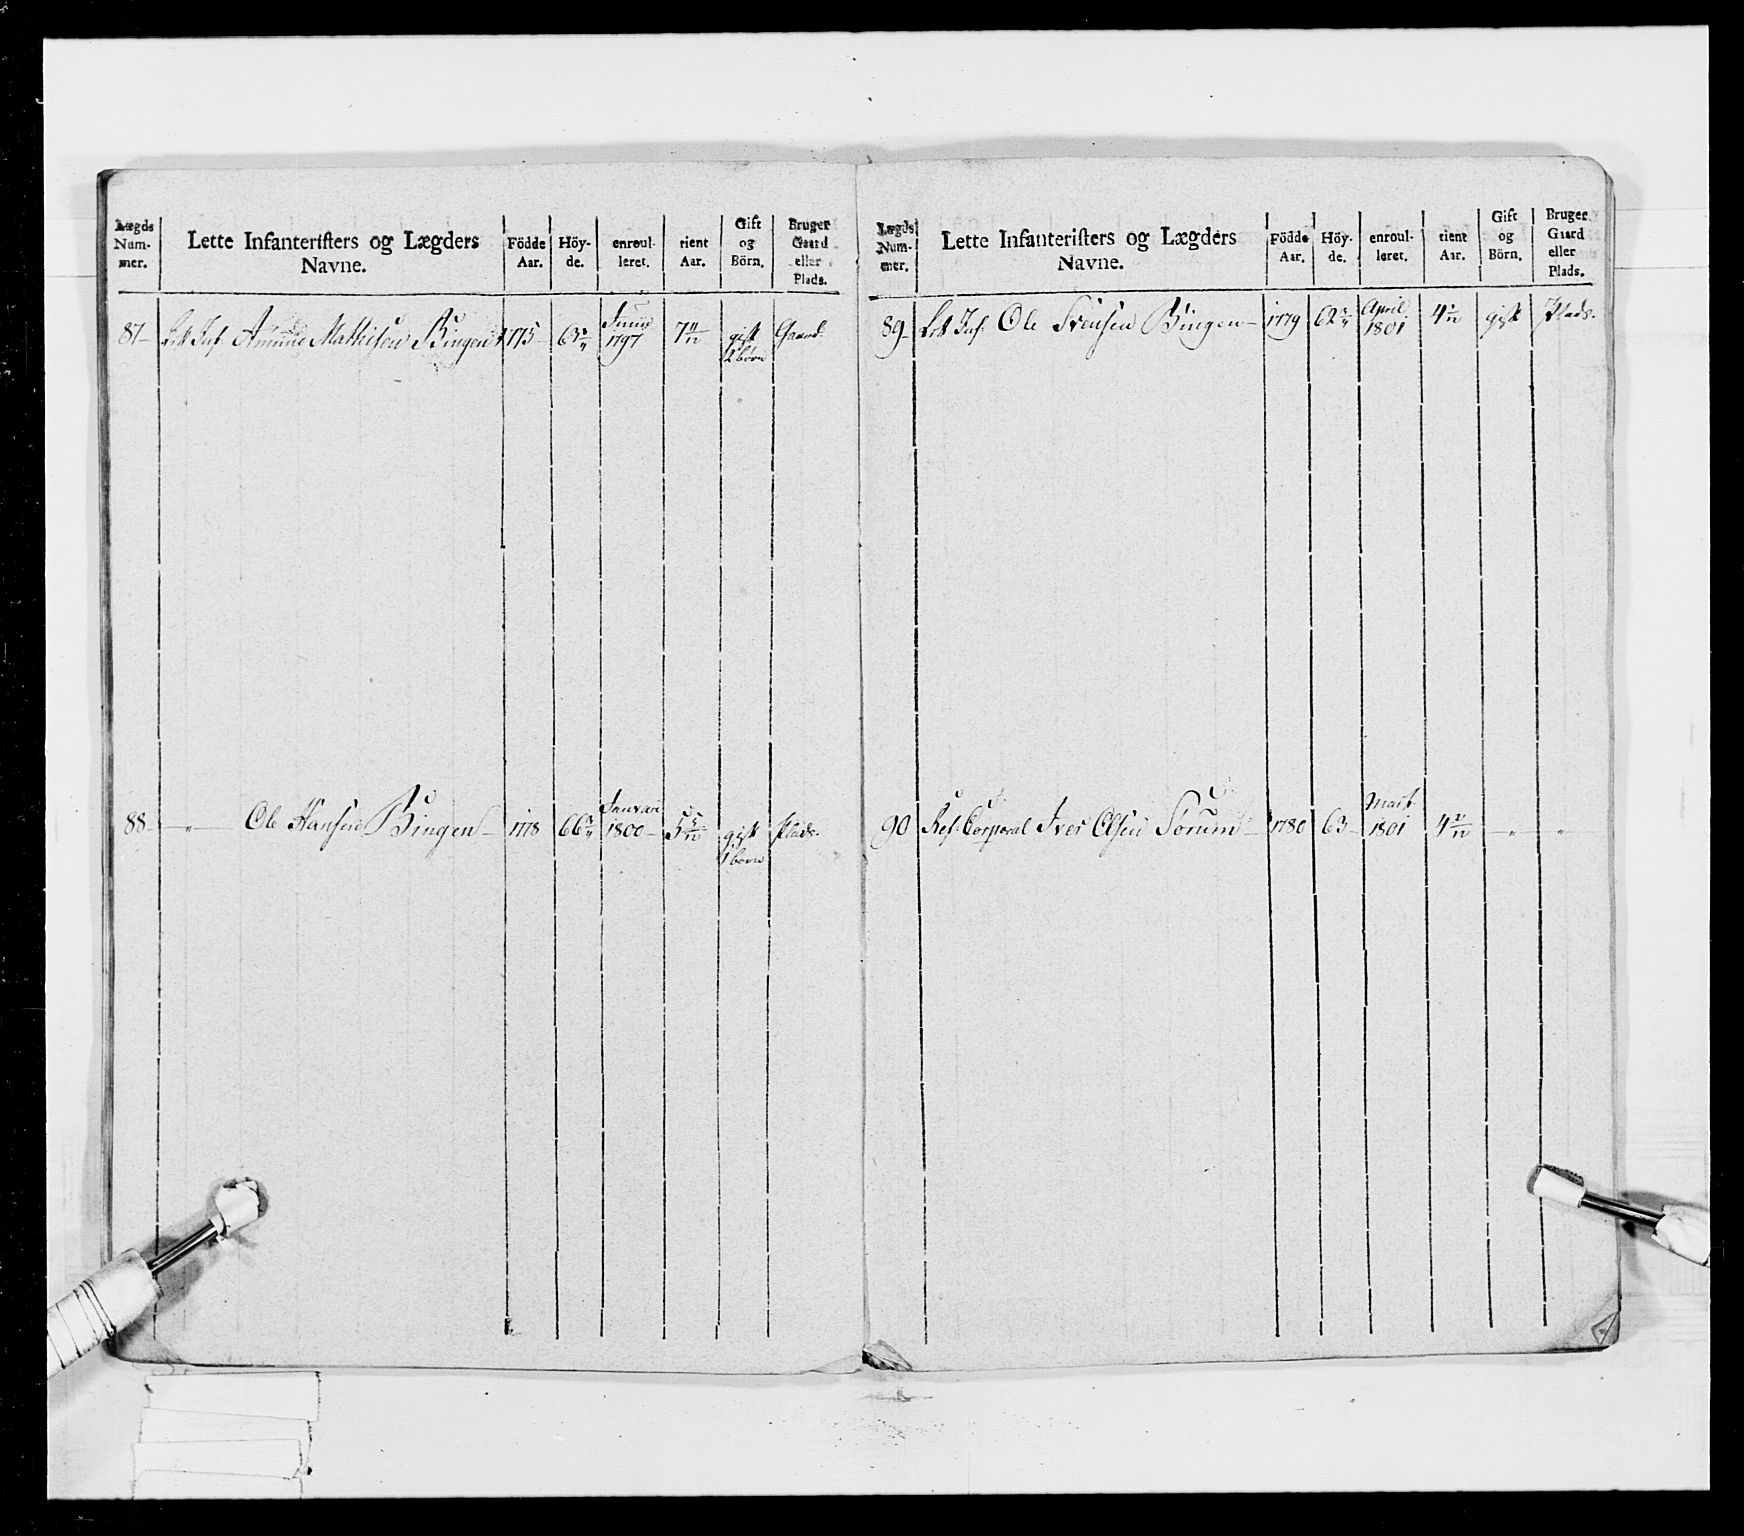 Lægds Num- mer. | Lette Infanterifters og Lægders Navne. | Födde Aar. | Höy- de. | enroul- leret. | tient Aar. | Gift og Börn. | Bruger Gaard eller Plads.
87 | Let Inf: Amund Mathisen Bingen | 1775 | 63 | Juny 1797 | 7 | gift 2 børn | Gaard
88 | " Ole Hansen Bingen | 1778 | 66 | Januari 1800 | 5 5/12 | gift 1 børn | Plads.
Lægds Num- mer. | Lette Infanterifters og Lægders Navne. | Födde Aar. | Höy- de. | enroul- leret. | tient Aar. | Gift og Börn. | Bruger Gaard eller Plads.
89 | Let Inf: Ole Svensen Bingen | 1779 | 62 | April 1801 | 4 | gift | Plads.
90 | Ref: Corporal Iver Olsen Sorum | 1780 | 63 | Marti 1801 | 4 | " | "